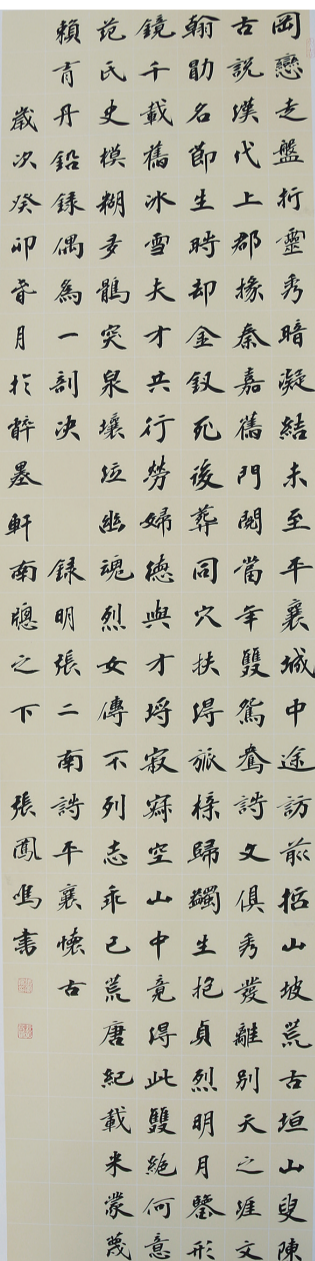 岡巒走盤折靈秀暗凝結未至平襄城中途訪前掂山坡荒古垣山叟陳
古說漢代上郡掾秦嘉舊門閥當年雙鴛鴦詩文俱秀發離別天之涯文
翰勖名節生時却金釵死後葬同穴扶得旅櫬歸蠲生抱貞烈明月鑒形
鏡千載舊冰雪夫才共行勞婦德與才埒寂寂空山中竟得此雙絕何意
范氏史模糊多鶻突泉壤泣幽魂烈女傳不列志乘已荒唐紀載米蒙蔑
賴有丹鉛錄偶為一剖決 錄明張二南詩平襄懷古
歲次癸卯春月於醉墨軒南牕之下 張鳳鳴書